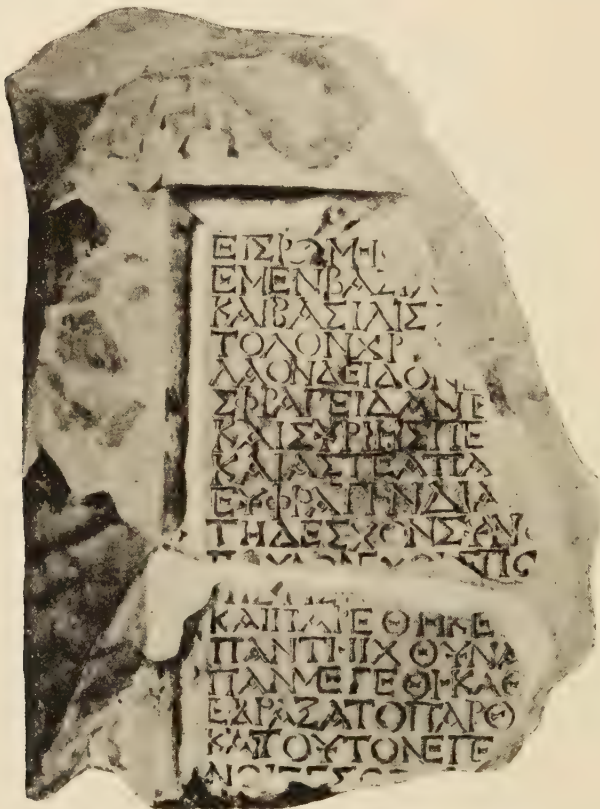 ΕΙΣΡΩΜΗ
ΕΜΕΝΒΑΣΙΛ
ΚΑΙΒΑΣΙΛΙΣ
ΤΟΛΟΝΧΡ
ΛΑΟΝΔΕΙΔΟΝ
ΣΦΡΑΓΕΙΔΑΝΕ
ΚΑΙΣΥΡΙΗΣΠΕ
ΚΑΙΑΣΤΕΑΠΑ
ΕΥΦΡΑΤΗΝΔΙΑ
ΤΗΔΕΣΧΟΝΣΥΝΟ
ΠΑΥΛΟΝΕΧΟΝΕΠΟ
ΠΙΣΤΙΣ
ΚΑΙΠΑΡΕΘΗΚΕ
ΠΑΝΤΗΙΧΘΥΝΑ
ΠΑΝΜΕΓΕΘΗΚΑΘ
ΕΔΡΑΞΑΤΟΠΑΡΘ
ΚΑΙΤΟΥΤΟΝΕΠΕ